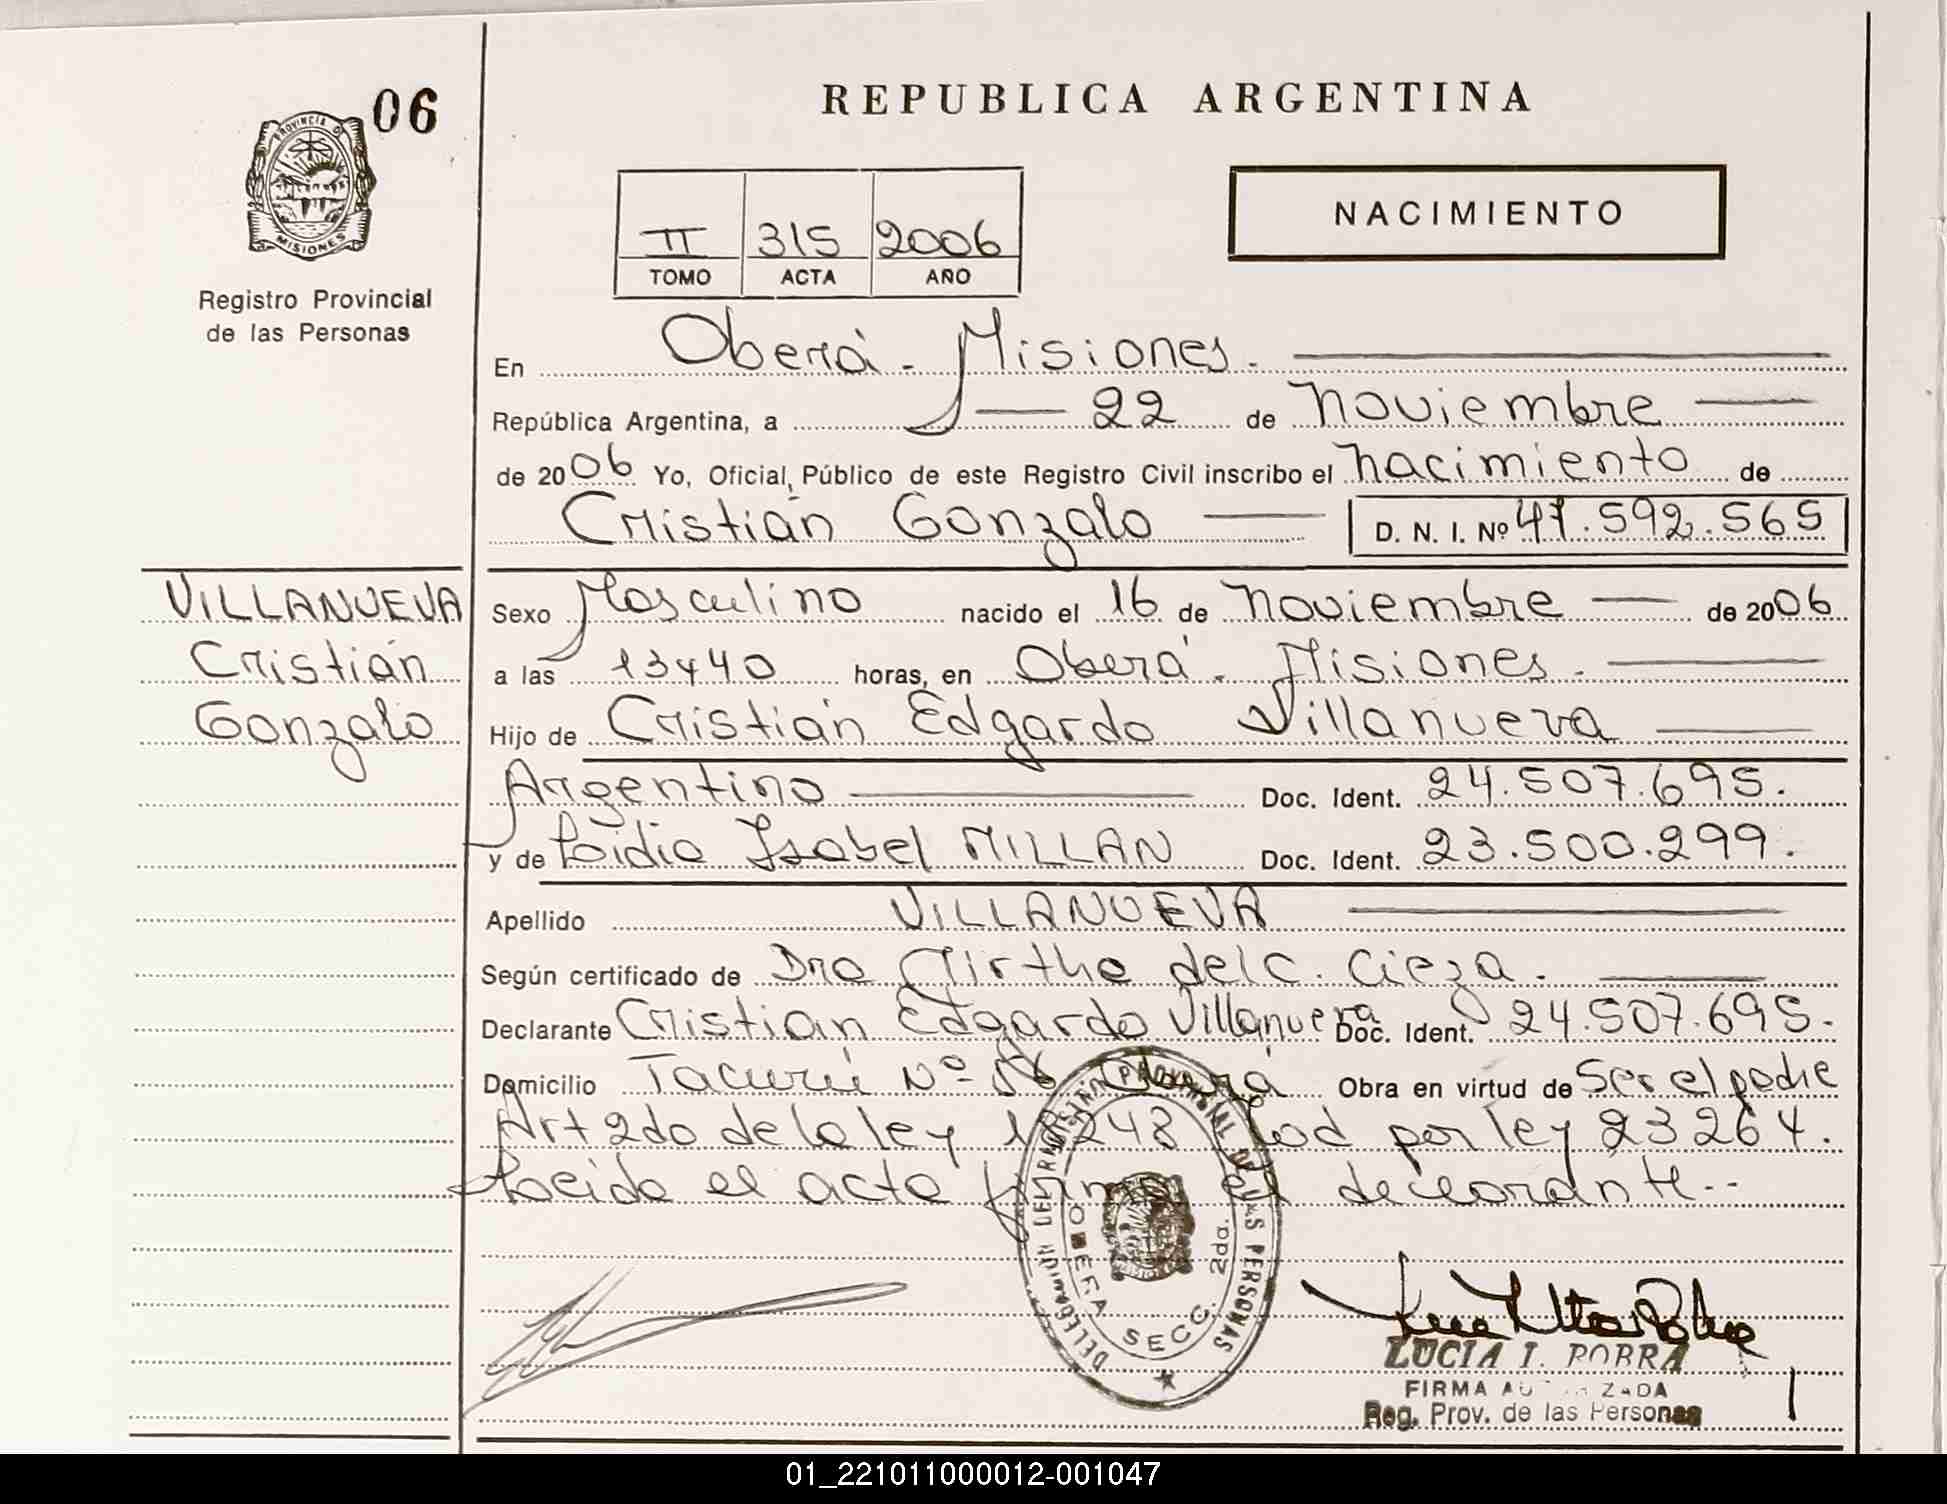 06
PROVINCIA DE
MISIONES
Registro Provincial
de las Personas
REPUBLICA ARGENTINA
NACIMIENTO
II 315 2006
TOMO ACTA AÑO
En Oberá - Misiones.
República Argentina, a 22 de Noviembre
de 2006 Yo, Oficial Público de este Registro Civil inscribo el nacimiento de
Cristián Gonzalo D. N. I. Nº 47.592.565
VILLANUEVA
Cristián
Gonzalo
Sexo Masculino nacido el 16 de Noviembre de 2006
a las 13y40 horas, en Oberá. Misiones.
Hijo de Cristián Edgardo Villanueva
Argentino Doc. Ident. 24.507.695.
y de Lidia Isabel MILLAN Doc. Ident. 23.500.299.
Apellido VILLANUEVA
Según certificado de Dra Mirtha del C. Cieza.
Declarante Cristian Edgardo Villanueva Doc. Ident. 24.507.695.
Domicilio Tacurú Nº 56 Oberá Obra en virtud de Ser el padre
Art 2do de la ley 18248 Mod por ley 23264.
Leida el acta firma el declarante--
DELEGACION DEL REGISTRO PROVINCIAL DE LAS PERSONAS
OBERA SECC. 2da.
LUCIA I. POBRA
FIRMA AUTORIZADA
Reg. Prov. de las Personas
01_221011000012-001047